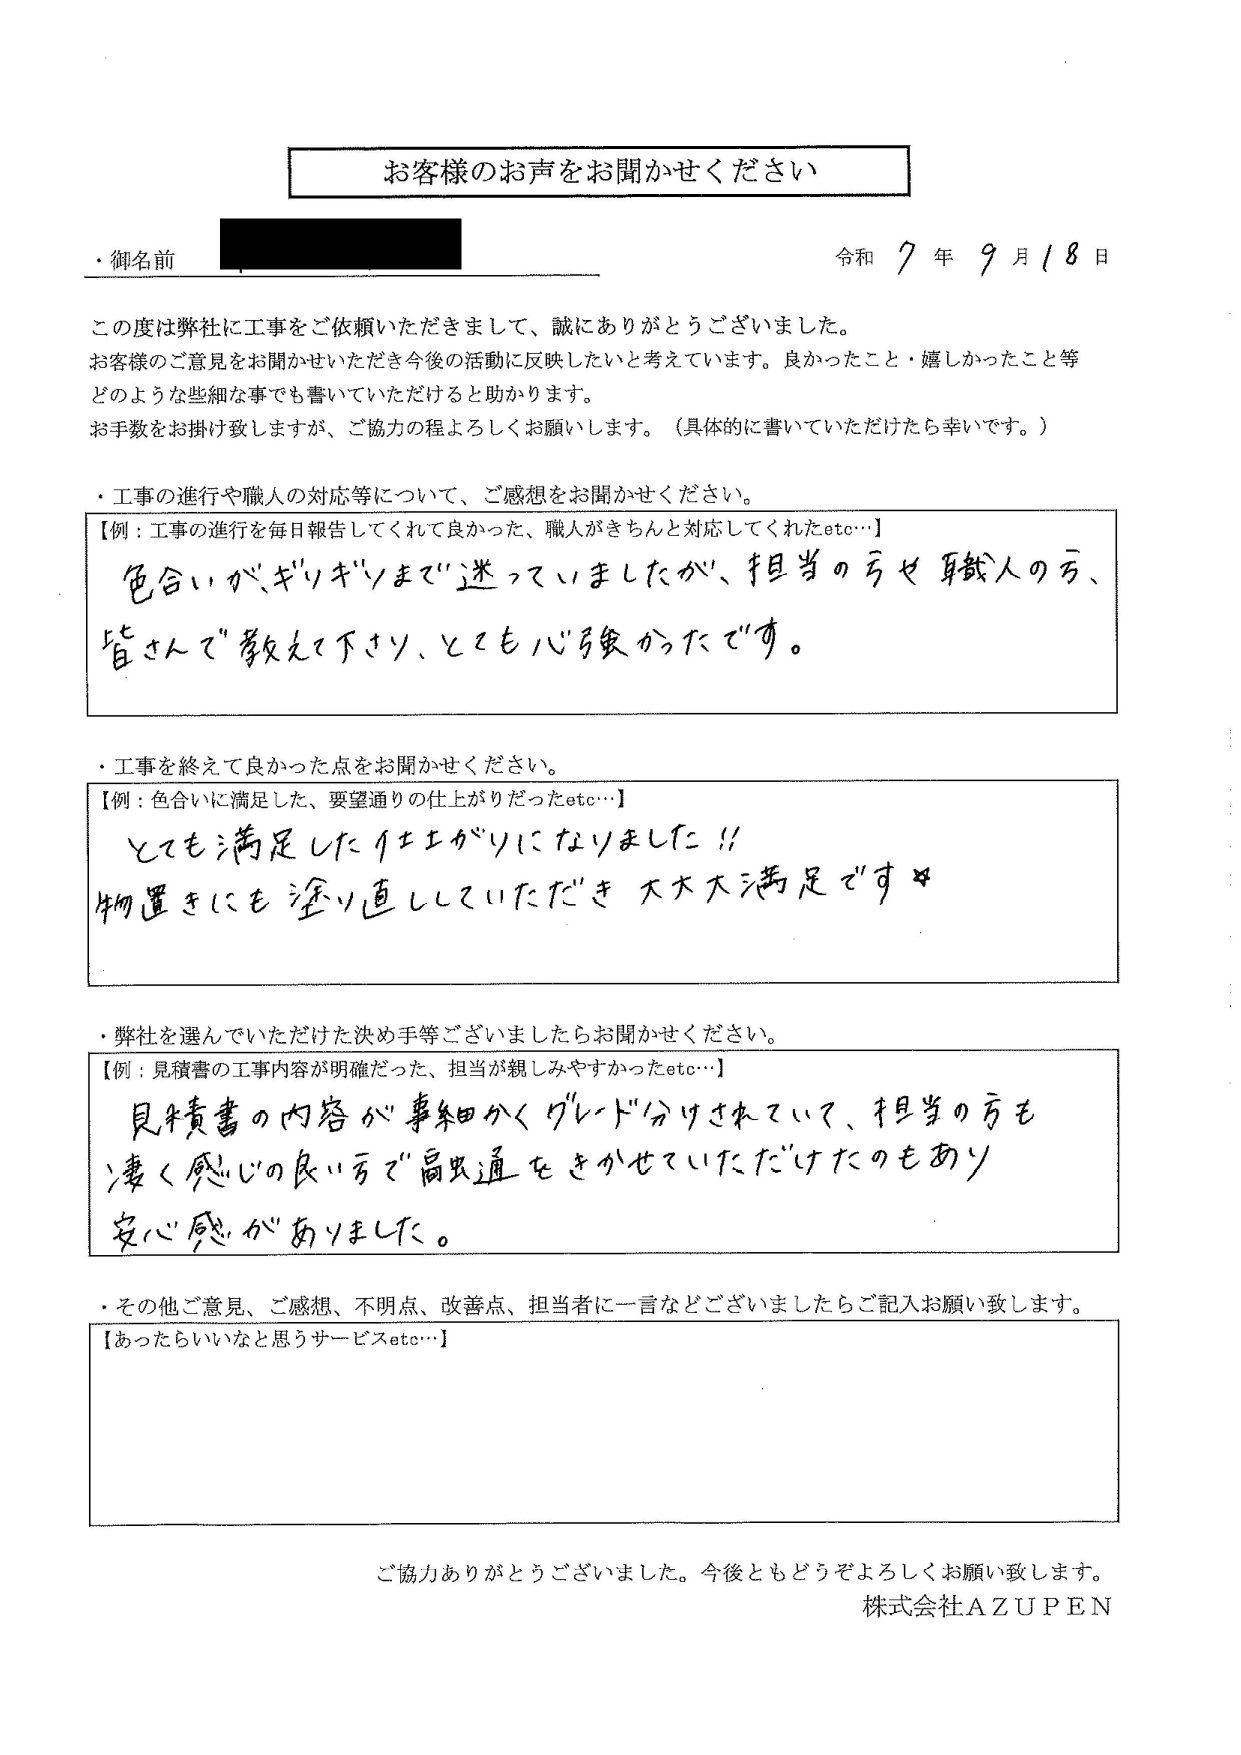 お客様のお声をお聞かせください
・御名前
令和 7 年 9 月 18 日
この度は弊社に工事をご依頼いただきまして、誠にありがとうございました。
お客様のご意見をお聞かせいただき今後の活動に反映したいと考えています。良かったこと・嬉しかったこと等
どのような些細な事でも書いていただけると助かります。
お手数をお掛け致しますが、ご協力の程よろしくお願いします。（具体的に書いていただけたら幸いです。）
・工事の進行や職人の対応等について、ご感想をお聞かせください。
【例：工事の進行を毎日報告してくれて良かった、職人がきちんと対応してくれたetc…】
色合いが、ギリギリまで迷っていましたが、担当の方や職人の方、
皆さんで教えて下さり、とても心強かったです。
・工事を終えて良かった点をお聞かせください。
【例：色合いに満足した、要望通りの仕上がりだったetc…】
とても満足した仕上がりになりました!!
物置きにも塗り直ししていただき大大大満足です☆
・弊社を選んでいただけた決め手等ございましたらお聞かせください。
【例：見積書の工事内容が明確だった、担当が親しみやすかったetc…】
見積書の内容が事細かくグレード分けされていて、担当の方も
凄く感じの良い方で融通をきかせていただけたのもあり
安心感がありました。
・その他ご意見、ご感想、不明点、改善点、担当者に一言などございましたらご記入お願い致します。
【あったらいいなと思うサービスetc…】
ご協力ありがとうございました。今後ともどうぞよろしくお願い致します。
株式会社ＡＺＵＰＥＮ